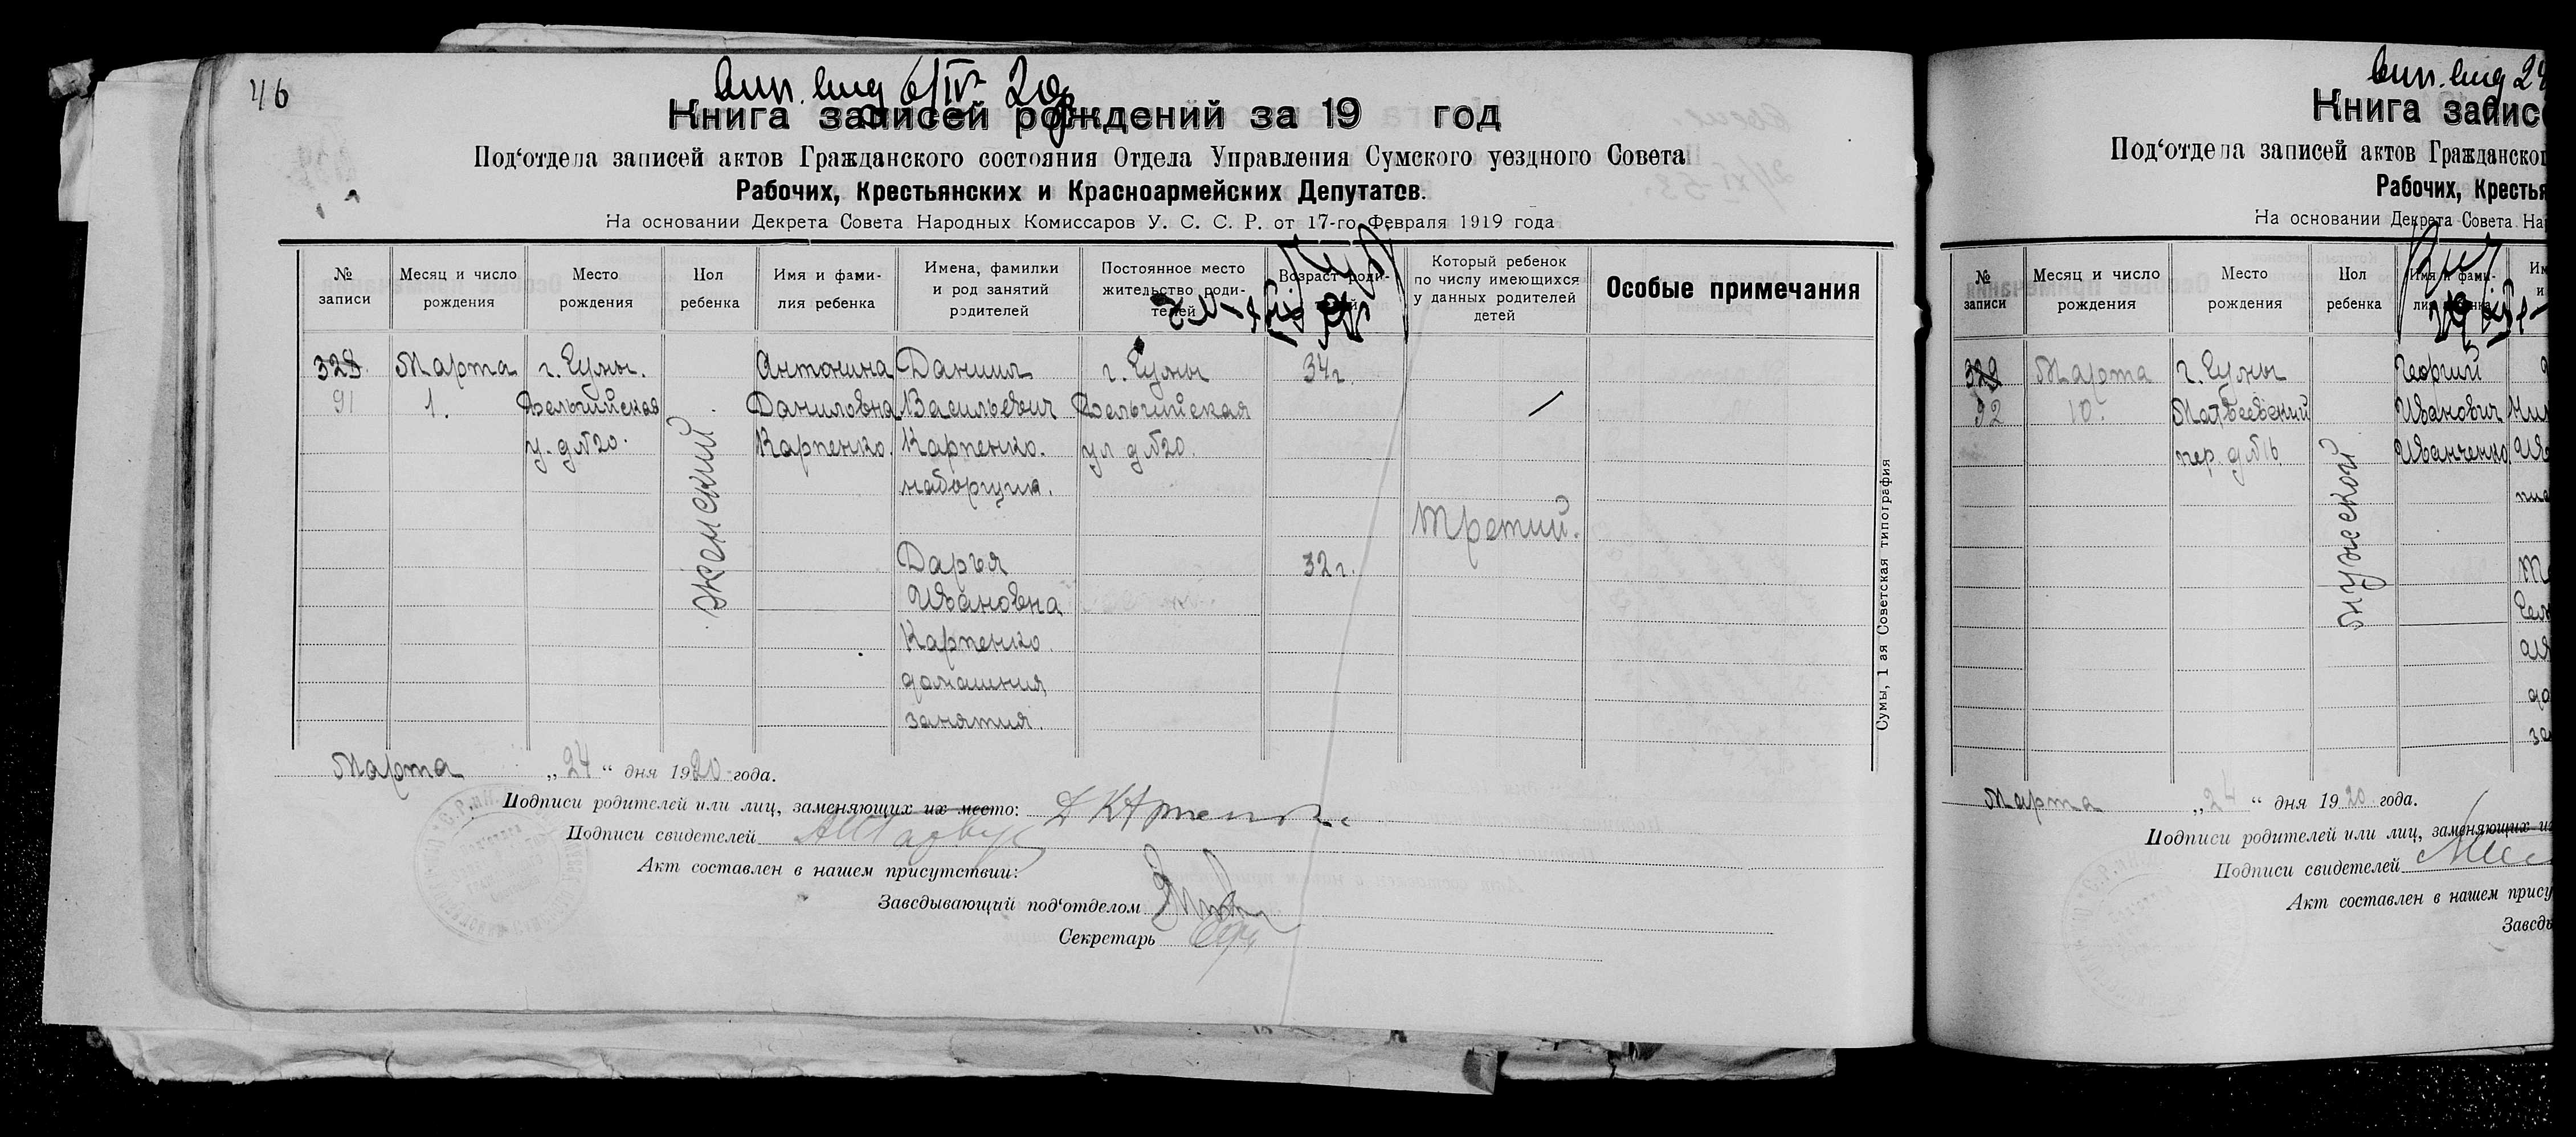 46
вып. вид 6/IV 20г
Книга записей рождений за 19 год
Под‘отдела записей актов Гражданского состояния Отдела Управления Сумского уездного Совета
Рабочих, Крестьянских и Красноармейских Депутатов.
На основании Декрета Совета Народных Комиссаров У. С. С. Р. от 17-го Февраля 1919 года
№ записи
Месяц и число рождения
Место рождения
Пол ребенка
Имя и фами-
лия ребенка
Имена, фамилии
и род занятий
родителей
Постоянное место
жительство роди-
телей
Возраст роди-
Который ребенок
по числу имеющихся
у данных родителей
детей
Особые примечания
328
91
Марта
1.
г. Сумы.
Бельгийская
у. д№20.
женский
Антонина
Даниловна
Карпенко.
Даниил
Васильевич
Карпенко.
наборщик.
Дарья
Ивановна
Карпенко.
домашния
занятия.
г. Сумы
Бельгийская
ул д№20.
34г.
32г.
третий.
Сумы, 1 ая Советская типография
Марта „24“ дня 1920 года.
Подписи родителей или лиц, заменяющих их место: Д Карпенко
Подписи свидетелей
Акт составлен в нашем присутствии:
Заведывающий под‘отделом
Секретарь
вып. вид 24
Книга записе
Под‘отдела записей актов Гражданског
Рабочих, Крестья
На основании Декрета Совета На
№ записи
Месяц и число рождения
Место рождения
Пол ребенка
Имя и фами-
329
92
Марта
10.
г. Сумы
Матвеевский
пер. д№16
мужеской
Георгий
Иванович
Иванченко
Марта „24“ дня 1920 года.
Подписи родителей или лиц, заменяющих их
Подписи свидетелей
Акт составлен в нашем прису
Завед